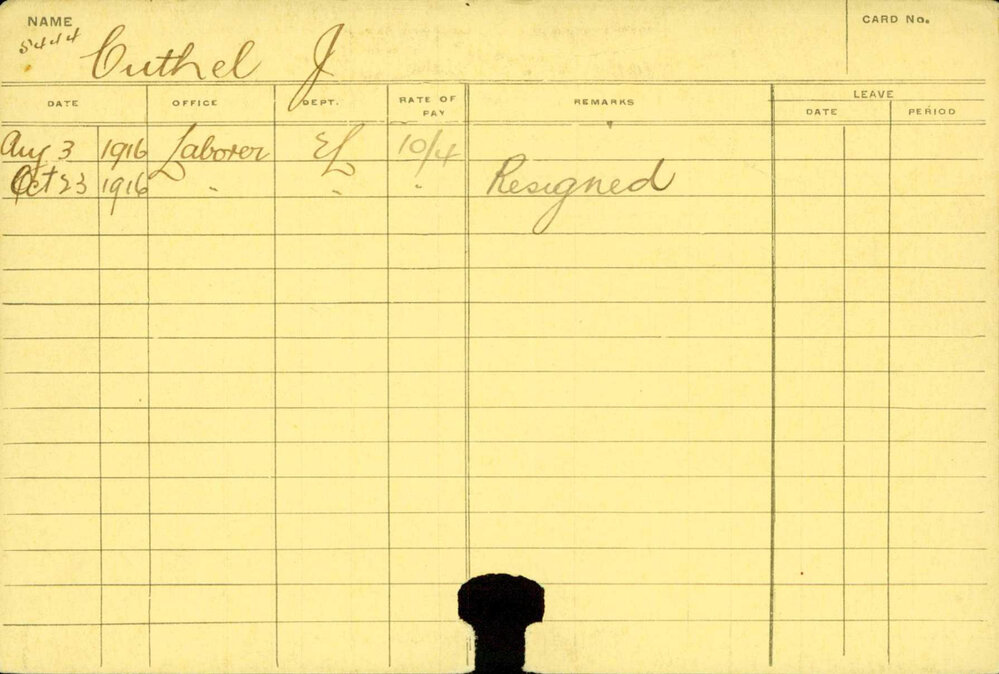 NAME
CARD No.
5444
Cuthel J
DATE OFFICE DEPT. RATE OF PAY REMARKS LEAVE
DATE PERIOD
Aug 3 1916 Laborer EL 10/4
Oct 23 1916 " " " Resigned